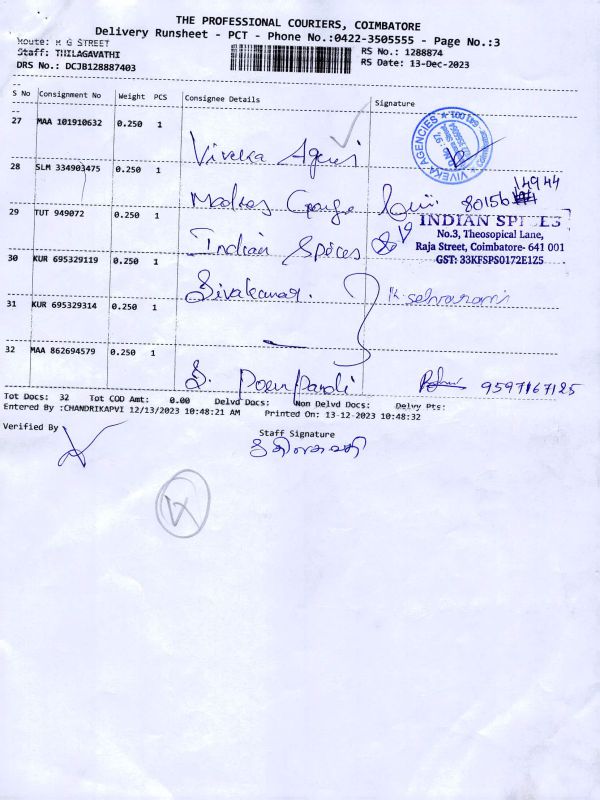 THE PROFESSIONAL COURIERS, COIMBATORE
Delivery Runsheet - PCT - Phone No.:0422-3505555 - Page No.:3
Route: M G STREET
Staff: THILAGAVATHI
RS No.: 1288874
DRS No.: DCJB128887403
RS Date: 13-Dec-2023
S No Consignment No Weight PCS Consignee Details Signature
27 MAA 101910632 0.250 1 Viveka
VIVEKA AGENCIES
28 SLM 334903475 0.250 1 Madras 80156 14944
29 TUT 949072 0.250 1 Indian Spices
INDIAN SPICES
No.3, Theosopical Lane,
Raja Street, Coimbatore- 641 001
GST: 33KFSPS0172E1Z5
30 KUR 695329119 0.250 1 Sivakumar. K. Selvarani
31 KUR 695329314 0.250 1
32 MAA 862694579 0.250 1 S. 9597167125
Tot Docs: 32 Tot COD Amt: 0.00 Delvd Docs: Non Delvd Docs: Delvy Pts:
Entered By :CHANDRIKAPVI 12/13/2023 10:48:21 AM Printed On: 13-12-2023 10:48:32
Verified By
Staff Signature